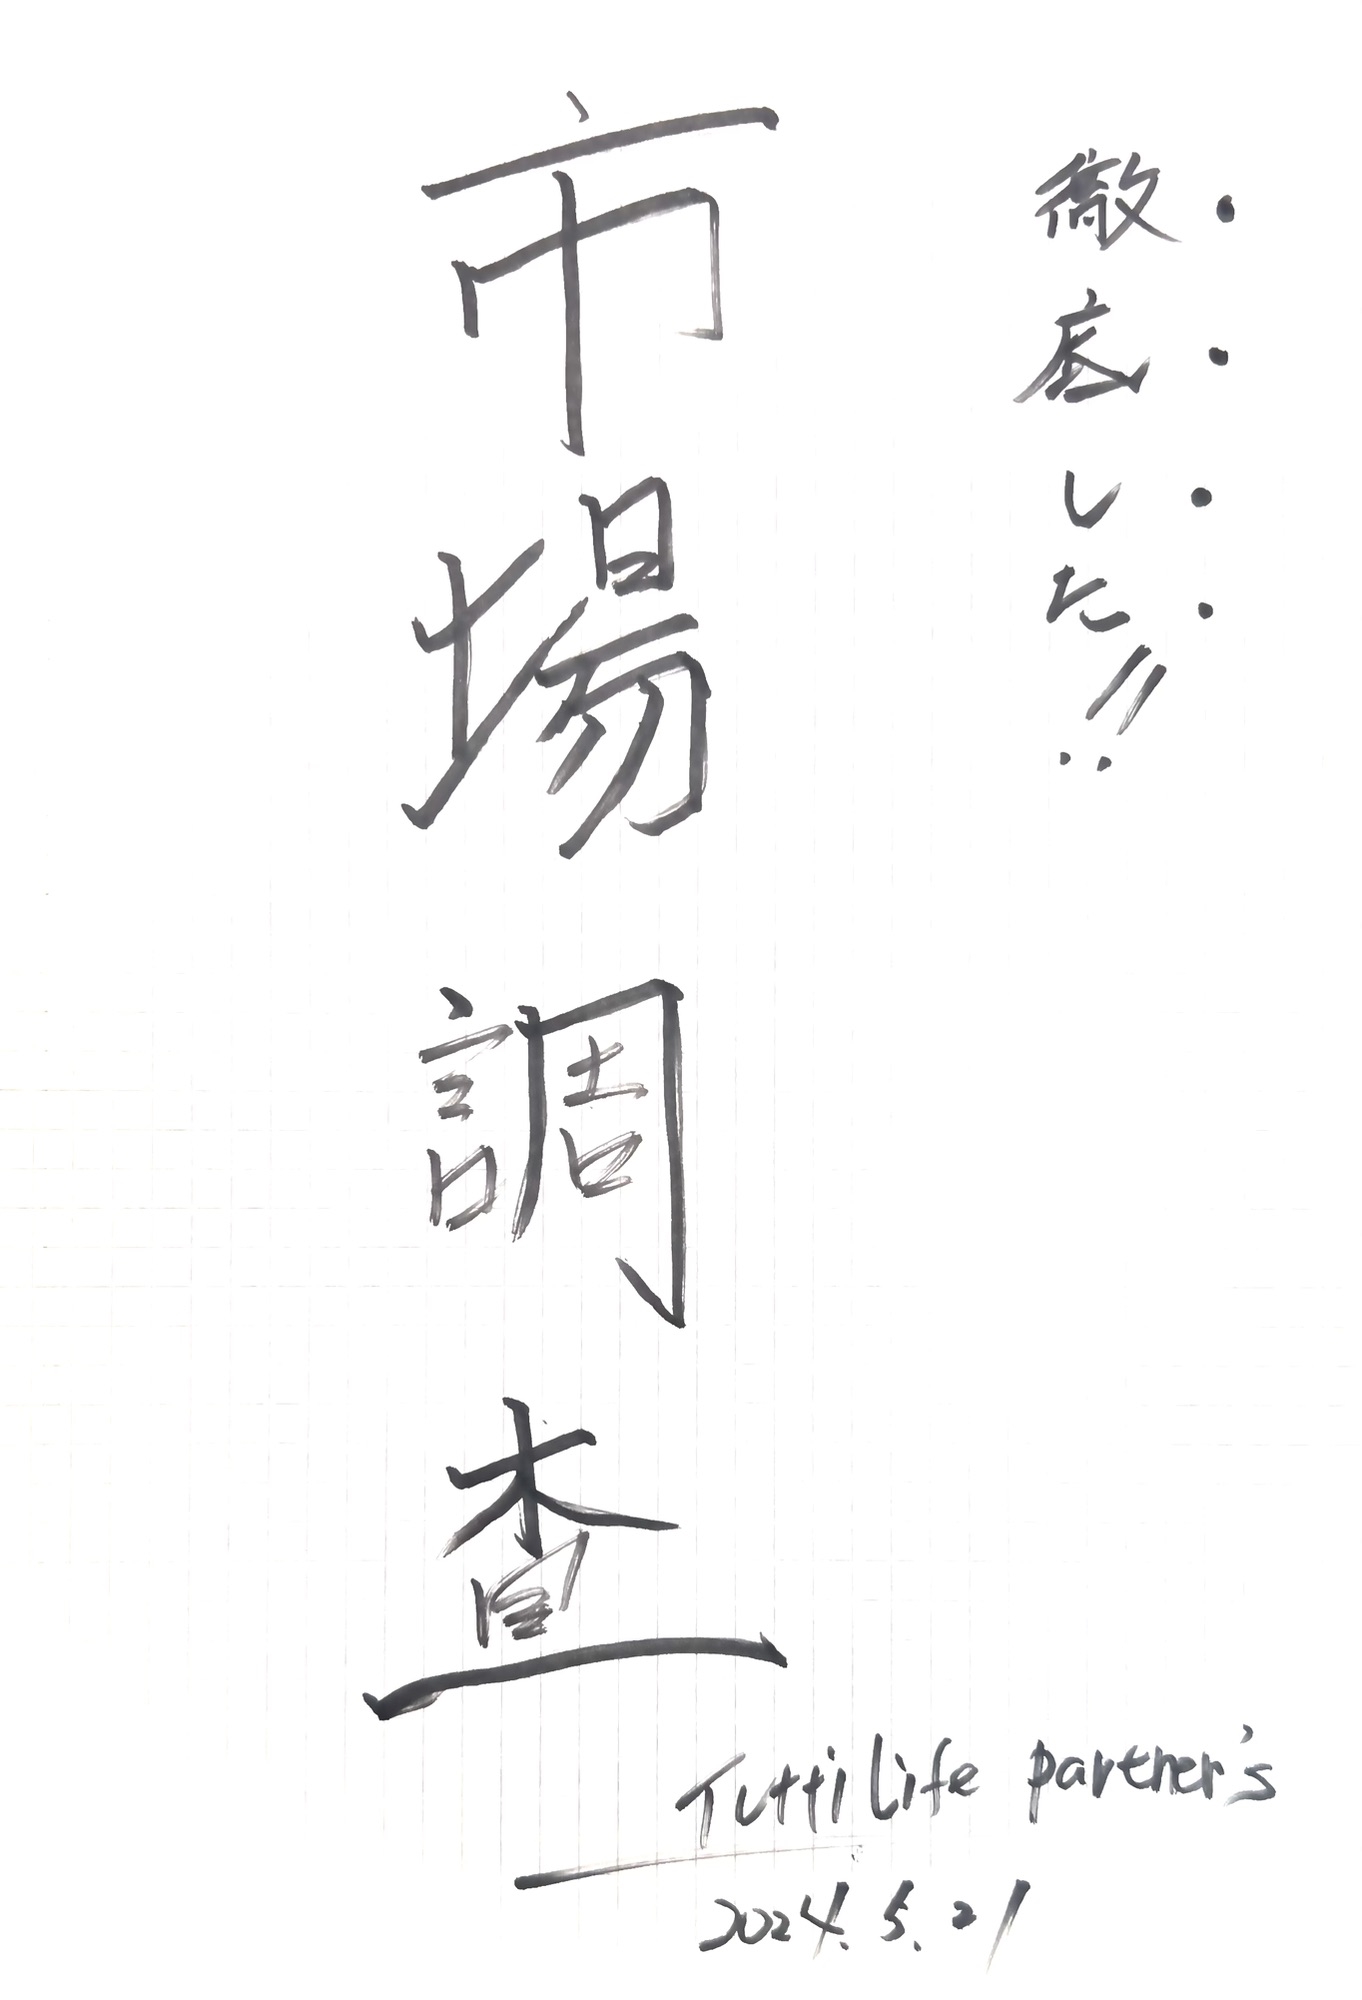 徹底した!!
市場調査
Tutti life partner's
2024.5.21